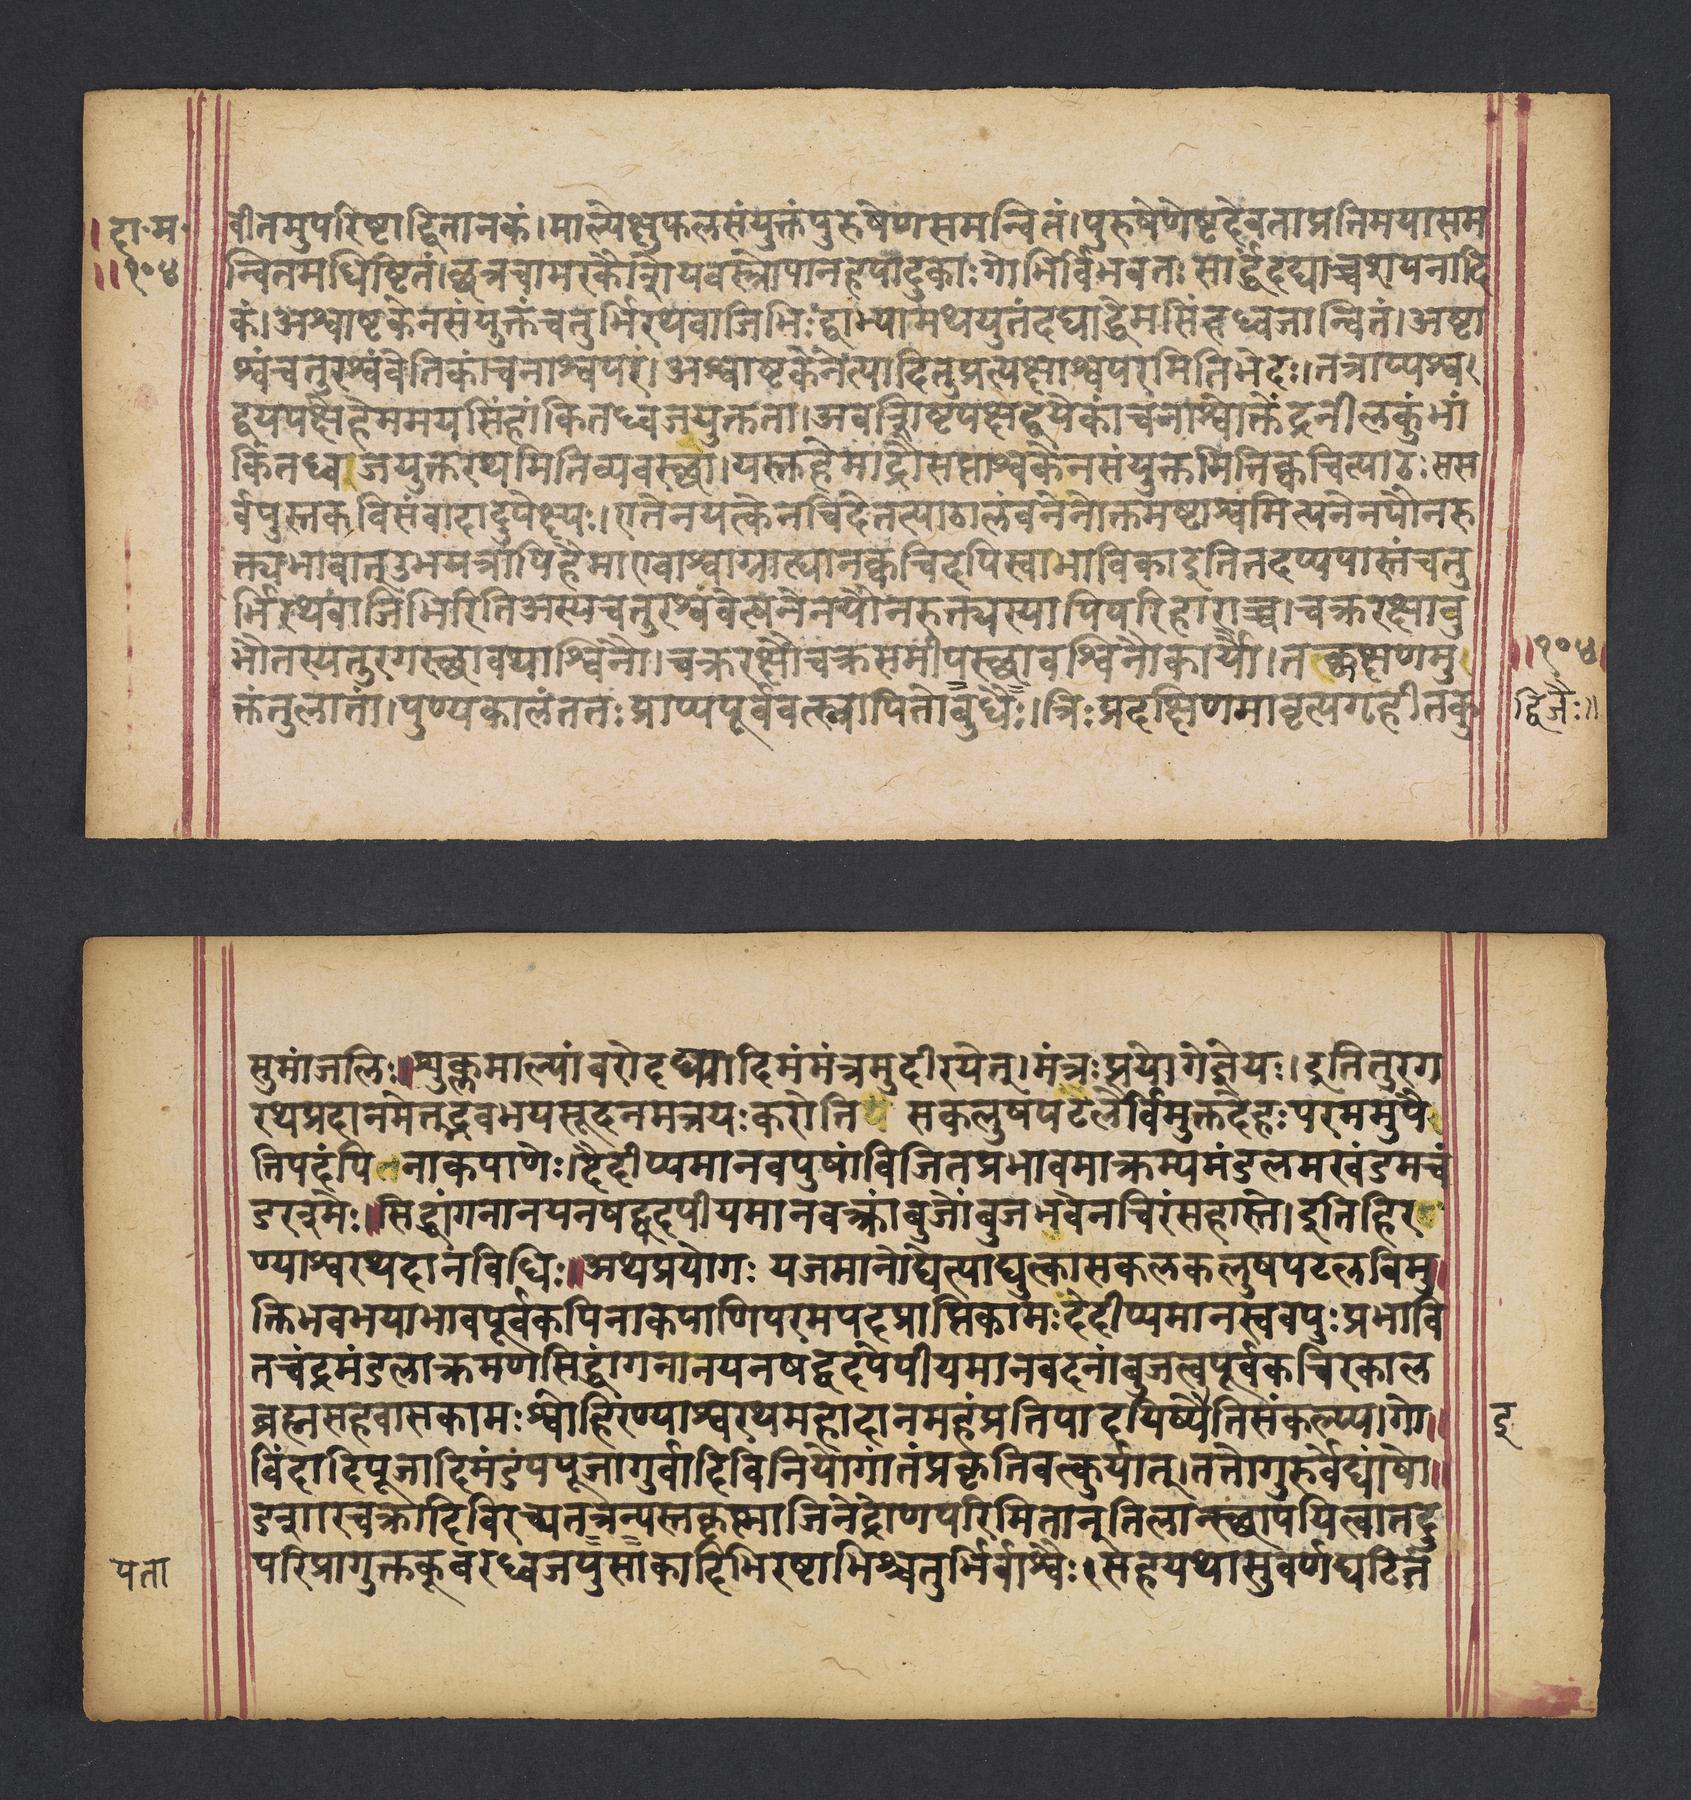 ॥दा॰म॰
॥१०४
वीतमुपरिष्टाद्वितानकं।माल्येक्षुफलसंयुक्तंपुरुषेणसमन्वितं।पुरुषेणेष्टदेवताप्रतिमयासम
न्वितमधिष्टितं।छत्रचामरकौशेयवस्त्रोपानहपादुकाःगोभिर्विभवतःसार्द्धंदद्याच्चशयनादि
कं।अश्वाष्टकेनसंयुक्तंचतुर्भिरथवाजिभिःद्वाभ्यामथयुतंदद्याद्धेमसिंहध्वजान्वितं।अष्टा
श्वंचतुरश्वंवेतिकांचनाश्वपरं।अश्वाष्टकेनेत्यादितुप्रत्यक्षाश्वपरमितिभेदः।तत्राप्यश्व
द्वयपक्षेहेममयसिंहांकितध्वजयुक्तता।अवशिष्टपक्षद्वयेकांचनाश्वोक्तेंद्रनीलकुंभां
कितध्वजयुक्तरथमितिव्यवस्छा।यस्तुहेमाद्रौसप्ताश्वकेनसंयुक्तमितिक्वचित्पाठःसस
र्वपुस्तकविसंवादादुपेक्ष्यः।एतेनयत्केनचिदेतत्पाठालंबनेनोक्तमष्टाश्वमित्यनेनपौनरु
क्त्यभावात्उभयत्रापिहैमाएवाश्वाग्राह्यानक्वचिदपिस्वाभाविकाइतितदप्यपास्तंचतु
र्भिरथवाजिभिरितिअस्यचतुरश्वंवेत्यनेनपौनरुक्त्यस्यापिपरिहाराच्च।चक्ररक्षावु
भौतस्यतुरगस्छावथाश्विनौ।चक्ररक्षौचक्रसमीपस्छावश्विनौकार्यौ।तल्लक्षणमु
॥१०४
क्तंतुलातां।पुण्यकालंततःप्राप्यपूर्ववत्स्नापितोबुधैः।त्रिःप्रदक्षिणमावृत्यगृहीतकु
द्विजैः॥
सुमांजलिः॥शुक्लमाल्यांबरोदद्यादिमंमंत्रमुदीरयेत्।मंत्रःप्रयोगेज्ञेयः।इतितुरग
रथप्रदानमेतद्भवभयसूदनमत्रयःकरोति सकलुषपटलैर्विमुक्तदेहःपरममुपै
तिपदंपिनाकपाणेः।देदीप्यमानवपुषांविजितप्रभावमाक्रम्यमंडलमखंडमचं
डरश्मेः॥सिद्धांगनानयनषट्पदपीयमानवक्त्रांबुजोंबुजभवेनचिरंसहास्ते।इतिहिर
ण्याश्वरथदानविधिः॥अथप्रयोगः यजमानोद्येत्याद्युत्कासकलकलुषपटलविमु
क्तिभवभयाभावपूर्वकपिनाकपाणिपरमपदप्राप्तिकामःदेदीप्यमानस्ववपुःप्रभावि
तचंद्रमंडलाक्रमणसिद्धांगनानयनषट्पदपेपीयमानवदनांबुजत्वपूर्वकचिरकाल
ब्रह्मसहवासकामःश्वोहिरण्याश्वरथमहादानमहंप्रतिपादयिष्येतिसंकल्प्य।गो
इ
विंदादिपूजादिमंडपपूजागुर्वादिविनियोगांतंप्रकृतिवत्कुर्यात्।ततोगुरुर्वेद्यांषो
डशारचक्रादिविरच्यतत्रन्यस्तकृष्णाजिनेद्रोणपरिमितान्तिलान्स्छापयित्वातदु
परिप्रागुक्तकूबरध्वजपुसाकादिभिरष्टाभिश्चतुर्भिर्वाश्वैः।सहयथासुवर्णघटितं
पता